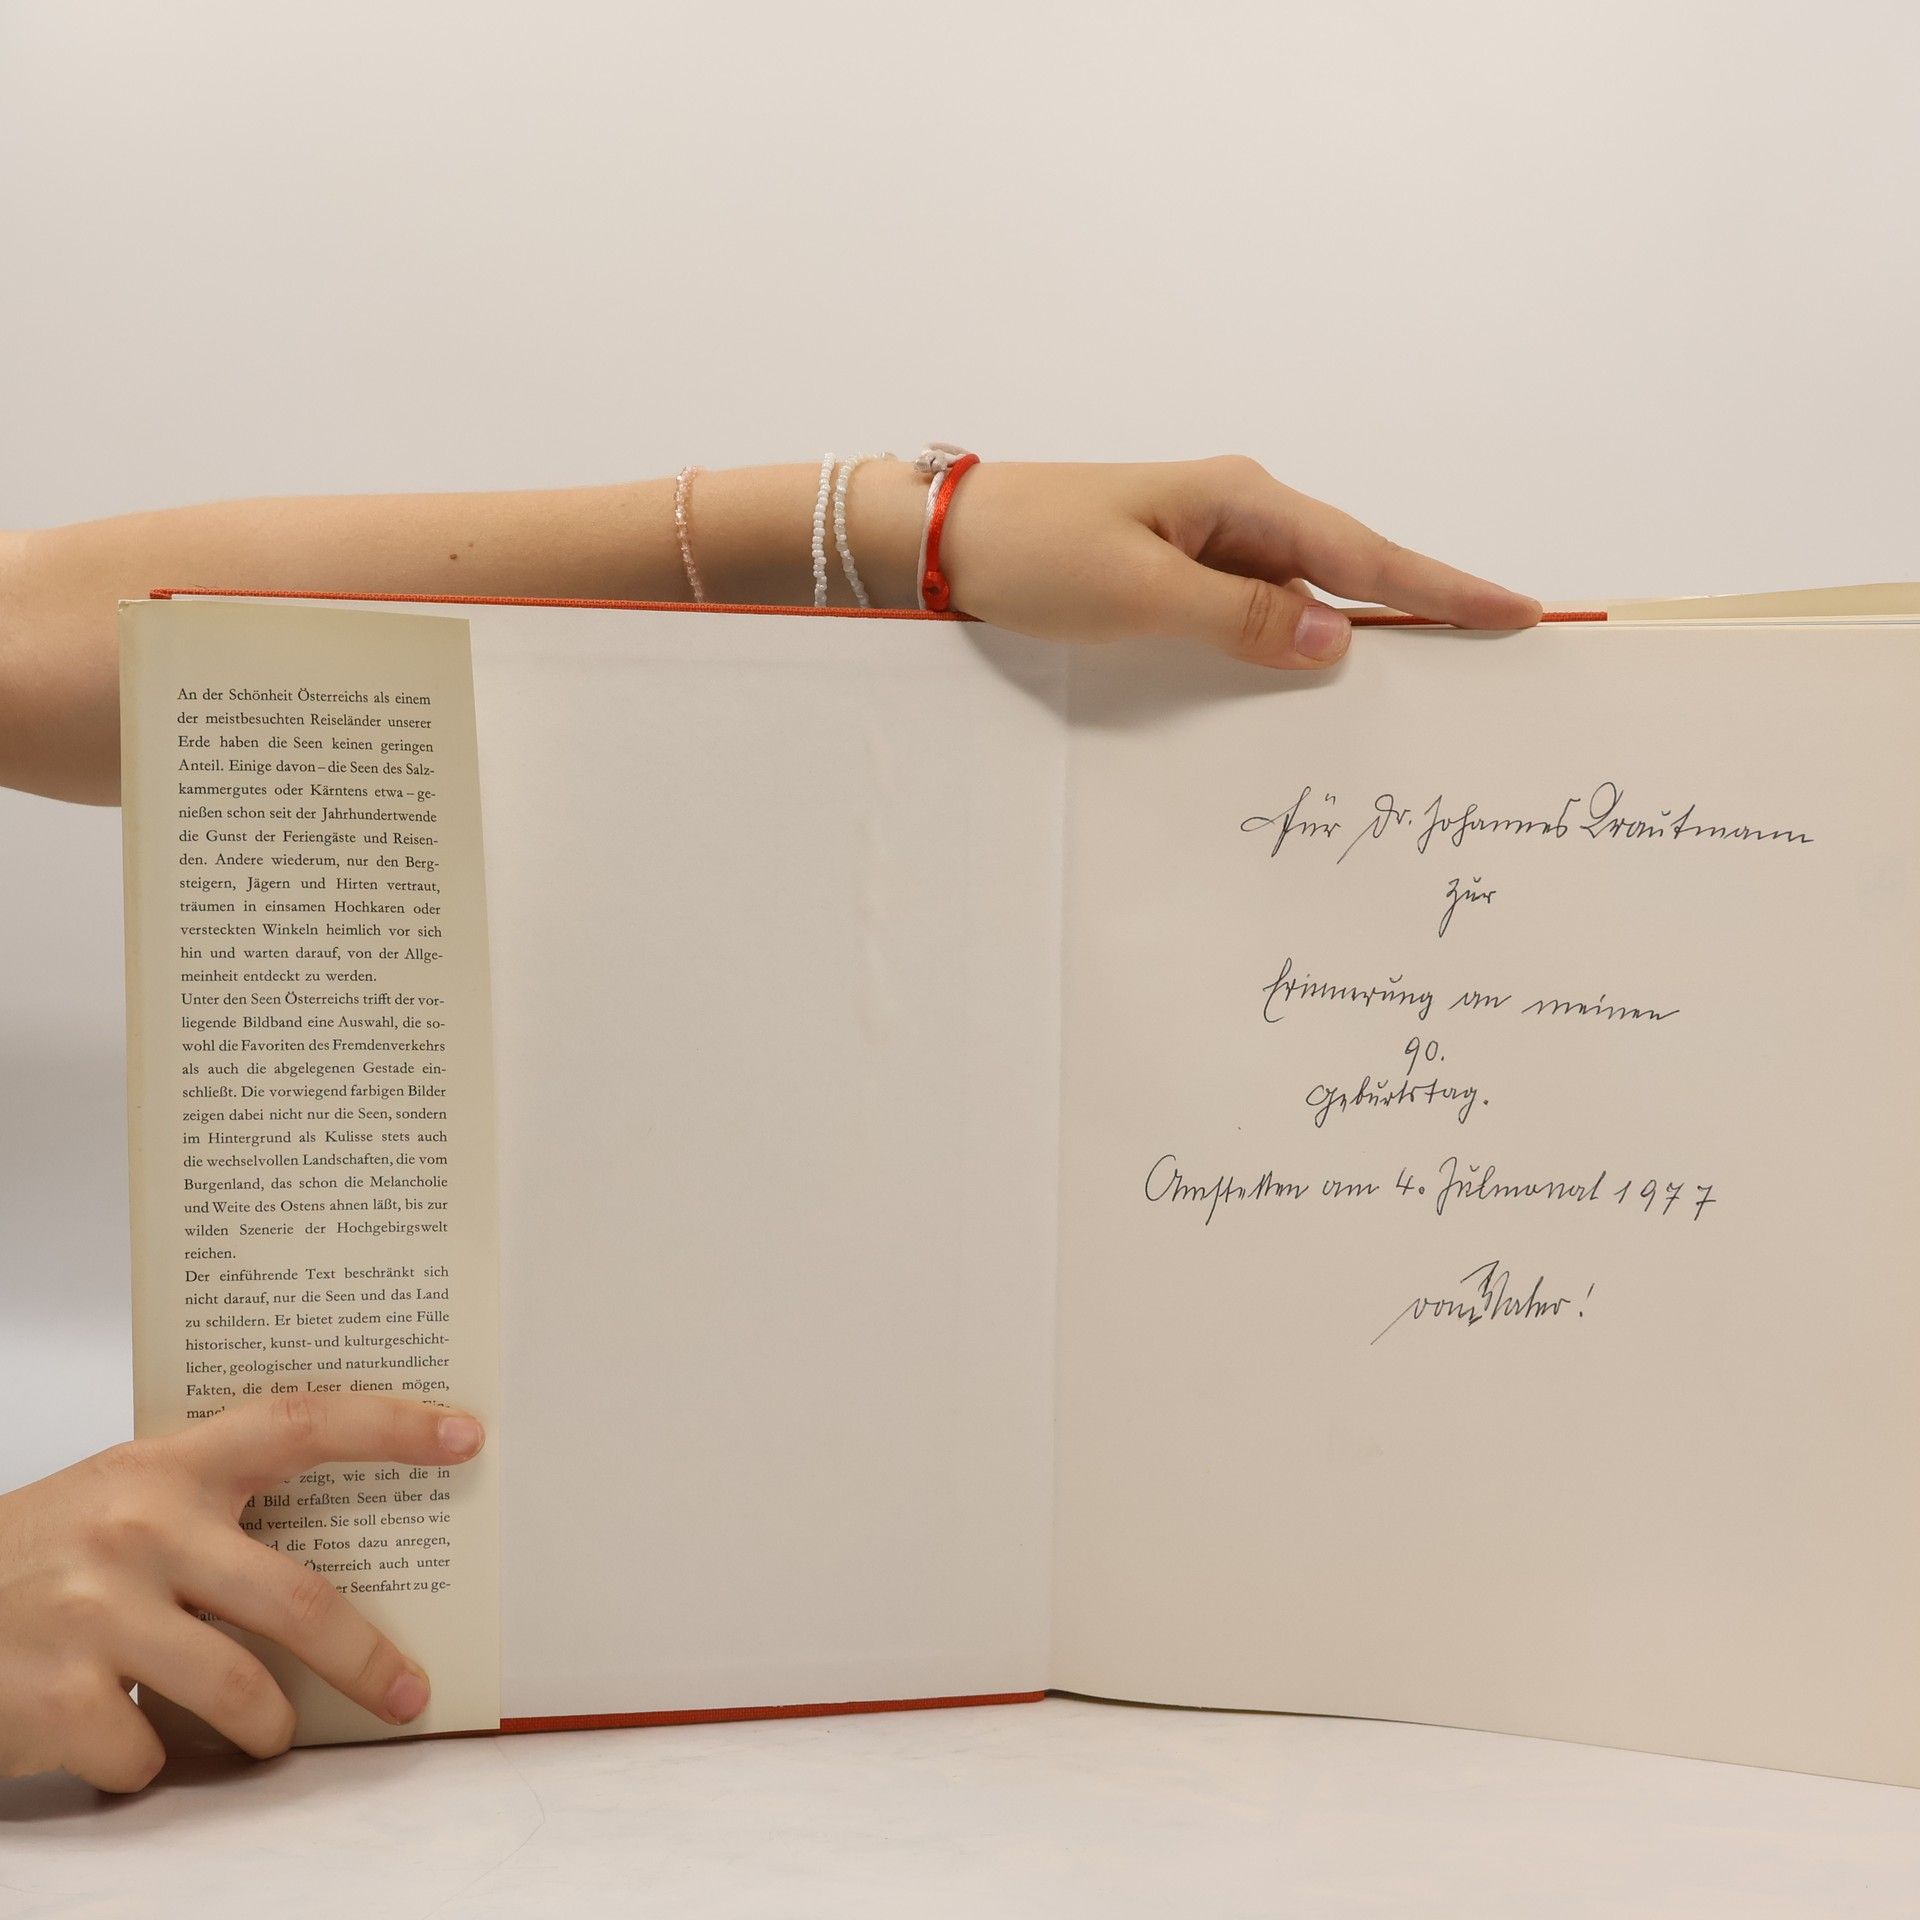 An der Schönheit Österreichs als einem
der meistbesuchten Reiseländer unserer
Erde haben die Seen keinen geringen
Anteil. Einige davon – die Seen des Salz-
kammergutes oder Kärntens etwa – ge-
nießen schon seit der Jahrhundertwende
die Gunst der Feriengäste und Reisen-
den. Andere wiederum, nur den Berg-
steigern, Jägern und Hirten vertraut,
träumen in einsamen Hochkaren oder
versteckten Winkeln heimlich vor sich
hin und warten darauf, von der Allge-
meinheit entdeckt zu werden.
Unter den Seen Österreichs trifft der vor-
liegende Bildband eine Auswahl, die so-
wohl die Favoriten des Fremdenverkehrs
als auch die abgelegenen Gestade ein-
schließt. Die vorwiegend farbigen Bilder
zeigen dabei nicht nur die Seen, sondern
im Hintergrund als Kulisse stets auch
die wechselvollen Landschaften, die vom
Burgenland, das schon die Melancholie
und Weite des Ostens ahnen läßt, bis zur
wilden Szenerie der Hochgebirgswelt
reichen.
Der einführende Text beschränkt sich
nicht darauf, nur die Seen und das Land
zu schildern. Er bietet zudem eine Fülle
historischer, kunst- und kulturgeschicht-
licher, geologischer und naturkundlicher
Fakten, die dem Leser dienen mögen,
zeigt, wie sich die in
Bild erfaßten Seen über das
verteilen. Sie soll ebenso wie
die Fotos dazu anregen,
Österreich auch unter
Seenfahrt zu ge-
Für Dr. Johannes Trautmann
zur
Erinnerung an meinen
90.
Geburtstag.
Amstetten am 4. Julmonat 1977
vom Vater!